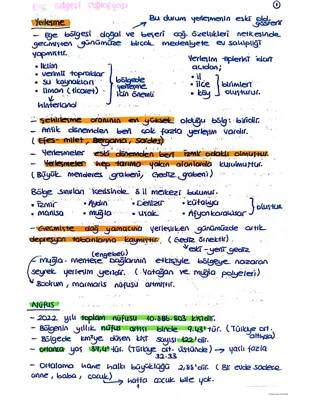 Ege Bölgesi Coğrafyası
1
Yerleşme → Bu durum yerleşmenin eski old. gösterir
- Ege bölgesi doğal ve beşeri coğ. özellikleri neticesinde
geçmişten günümüze birçok medeniyete ev sahipliği
yapmıştır.
• İklim
• verimli topraklar
• su kaynakları
• liman (ticaret)
↓
Hinterland
bölgede yerleşim için önemli
Yerleşim tipleri idari açıdan;
• il
• ilçe
• köy
birimleri oluşturur.
- Şehirleşme oranının en yüksek olduğu bölg. biridir.
- Antik dönemden beri çok fazla yerleşim vardır.
(Efes, milet, Bergama, Sardes)
- Yerleşmeler eski dönemden beri İzmir odaklı olmuştur.
- Yerleşmeler hep tarıma yakın alanlarda kurulmuştur.
(Büyük menderes grabeni, Gediz grabeni)
Bölge sınırları içerisinde 8 il merkezi bulunur.
• İzmir • Aydın • Denizli • Kütahya
• manisa • muğla • uşak • Afyonkarahisar
oluştur.
- Geçmişte dağ yamacına yerleşilirken günümüzde artık
depresyon tabanlarına kaymıştır. (Gediz örnekti)
(engebeli) Yeni-yerit gediz
- muğla - menteşe dağlarının etkisiyle bölgeye nazaran
seyrek yerleşim yeridir. (Yatağan ve muğla polyeleri)
Bodrum, marmaris nüfusu artmıştır.
Nüfus
- 2022 yılı toplam nüfusu 10.885.803 kişidir.
- Bölgenin yıllık nüfus artışı binde 9.43'tür. (Türkiye ort. altında)
- Bölgede km²ye düşen kişi sayısı 122'dir.
- ortanca yaş 37,4'tür. (Türkiye ort. üstünde) → yaşlı fazla
32-33
- Ortalama hane halkı büyüklüğü 2,85'dir. (Bir evde sadece
anne, baba, çocuk)
→ hatta çocuk bile yok.